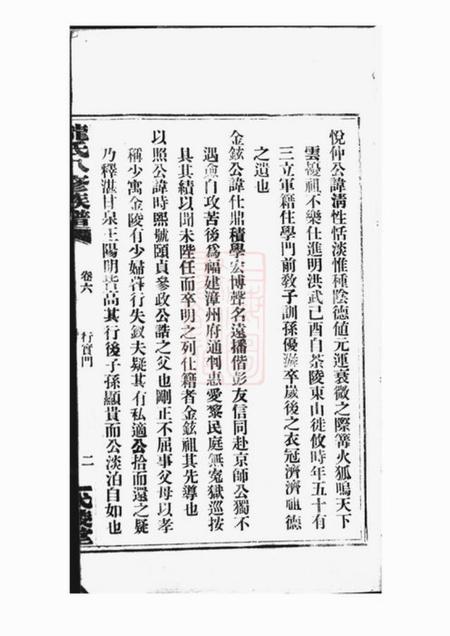 悅仲公諱清性恬淡惟種陰德値元運衰微之際篝火狐鳴天下
雲擾祖不樂仕進明洪武己酉自茶陵東山徙攸時年五十有
三立軍籍住學門前敎子訓孫優游卒歲後之衣冠濟濟祖德
之遺也
金鉉公諱仕鼎積學宏博聲名遠播偕彭友信同赴京師公獨不
遇愈自攻苦後爲福建漳州府通判惠愛黎民庭無寃獄巡按
具其績以聞未陞任而卒明之列仕籍者金鉉祖其先導也
以照公諱時熙號頤貞參政公誥之父也剛正不屈事父母以孝
稱少寓金陵有少婦暮行失釵夫疑其有私適公拾而還之疑
乃釋湛甘泉王陽明皆高其行後子孫顯貴而公淡泊自如也
氏八修族譜
卷六
行實門
二